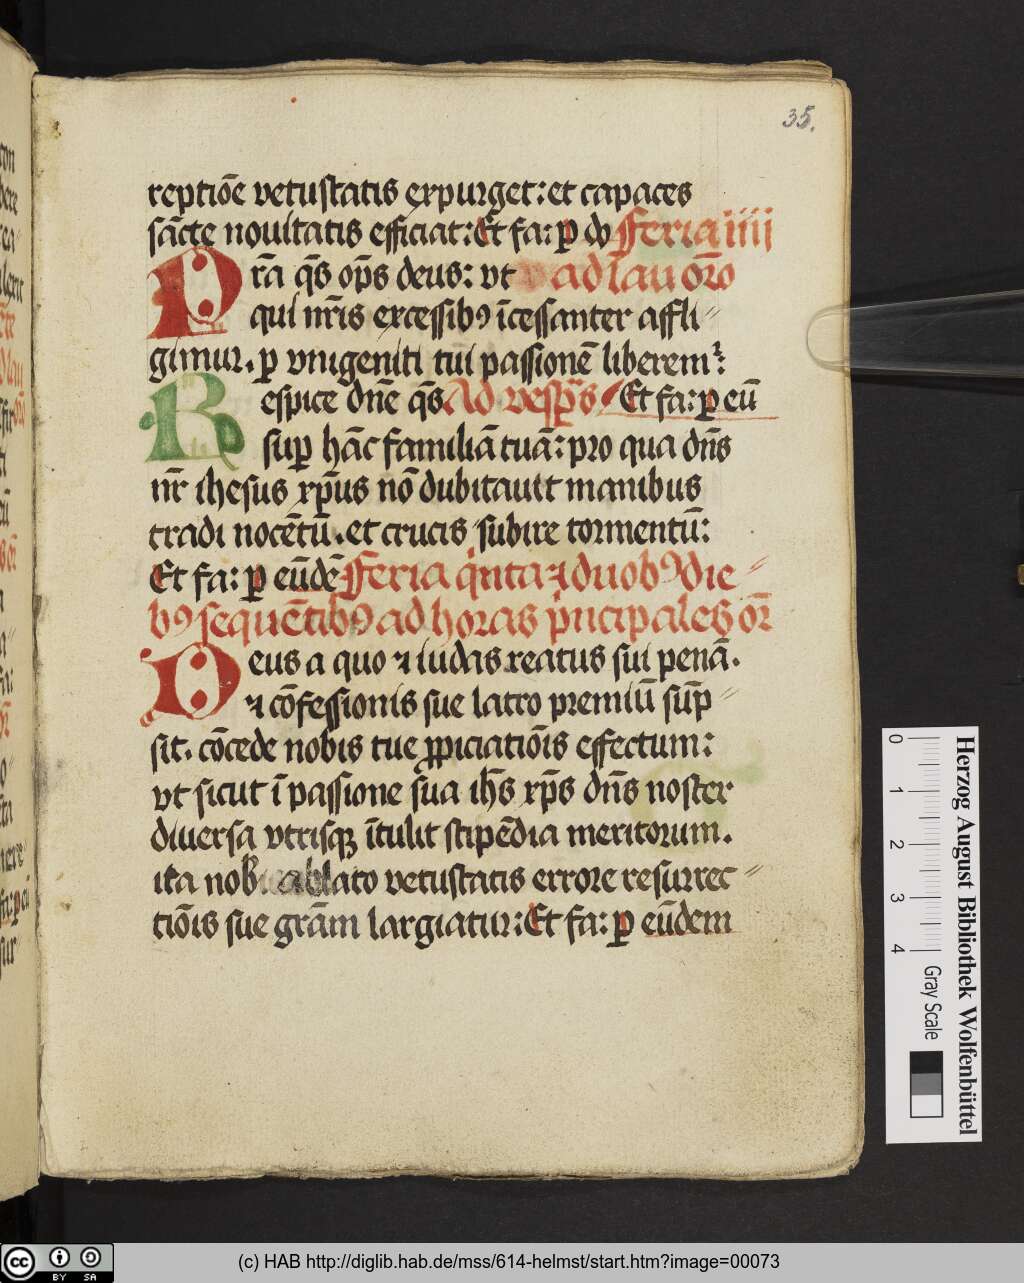 35.
reptiōe vetustatis expurget: et capaces
sācte nouitatis efficiat: Et fa: ꝑ do Feria iiii
Pra q̄s op̄s deus: vt ad lau or̄o
qui nr̄is excessibꝰ īcessanter affli〃
gimur. ꝑ vnigeniti tui passionē liberemᷣ:
Respice dn̄e q̄s Ad vesꝑs Et fa: ꝑ eū
suꝑ hāc familiā tuā: pro qua dn̄s
nr̄ ihesus xp̄us nō dubitauit manibus
tradi nocētū. et crucis subire tormentū:
Et fa: ꝑ eūdē Feria qͥnta ⁊ duobꝰ die〃
bꝰ sequētibꝰ ad horas pͥncipales or̄
Deus a quo ⁊ iudas reatus sui penā.
⁊ cōfessionis sue latro premiū sūp〃
sit. cōcede nobis tue ꝓpiciatiōis effectum:
vt sicut ī passione sua ih̄s xp̄s dn̄s noster
diuersa vtrisqꝫ ītulit stipēdia meritorum.
ita nob ablato vetustatis errore resurrec〃
tiōis sue grām largiatur: Et fa: ꝑ eūdem
Herzog August Bibliothek Wolfenbüttel
0 1 2 3 4
Gray Scale
cc BY SA
(c) HAB http://diglib.hab.de/mss/614-helmst/start.htm?image=00073